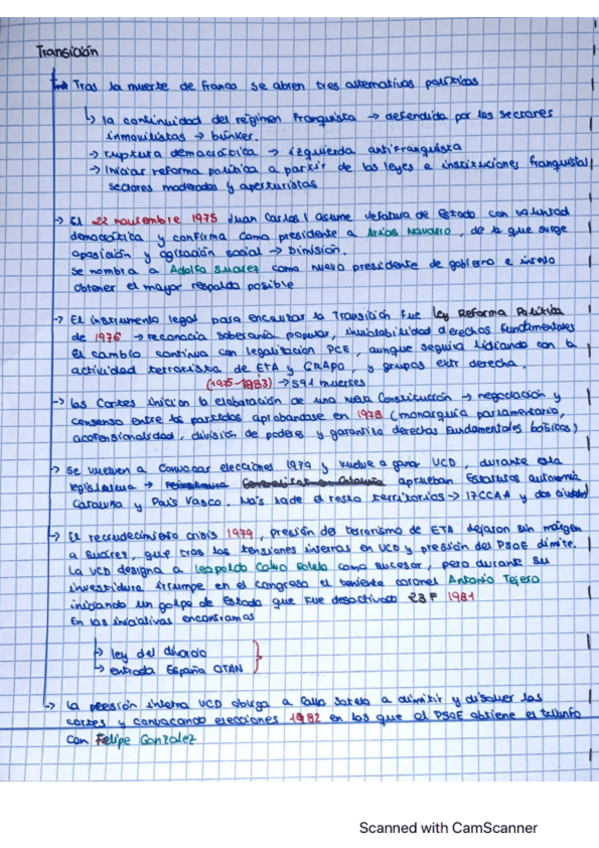 Transición
Tras la muerte de Franco se abren tres alternativas políticas
la continuidad del régimen franquista → defendida por los sectores
inmovilistas → búnker.
→ ruptura democrática → izquierda antifranquista
→ Iniciar reforma política a partir de las leyes e instituciones franquistas
sectores moderados y aperturistas
→ El 22 noviembre 1975 Juan Carlos I asume Jefatura de Estado con voluntad
democrática y confirma como presidente a Arias Navarro, de la que surge
oposición y agitación social → Dimisión.
Se nombra a Adolfo Suárez como nuevo presidente de gobierno e intenta
obtener el mayor respaldo posible
→ El instrumento legal para encauzar la Transición fue Ley Reforma Política
de 1976 → reconocía soberanía popular, inviolabilidad derechos fundamentales
El cambio continua con legalización PCE, aunque seguiría lidiando con la
actividad terrorista de ETA y GRAPO, y grupos extr derecha.
(1975-1983) → 591 muertes
→ Las Cortes inician la elaboración de una nueva Constitución → negociación y
consenso entre los partidos aprobandose en 1978 (monarquía parlamentaria,
aconfesionalidad, división de poderes y garantiza derechos fundamentales básicos)
→ Se vuelven a convocar elecciones 1979 y vuelve a ganar UCD, durante esta
legislatura → aprueban Estatutos autonomía
Cataluña y País Vasco. Más tarde el resto territorios → 17 CCAA y dos ciudades
→ El recrudecimiento crisis 1979, presión del terrorismo de ETA dejaron sin margen
a Suárez, que tras las tensiones internas en UCD y presión del PSOE dimite.
La UCD designa a Leopoldo Calvo Sotelo como sucesor, pero durante su
investidura irrumpe en el congreso el teniente coronel Antonio Tejero
iniciando un golpe de Estado que fue desactivado 23F 1981
En las iniciativas encontramos
→ ley del divorcio
→ entrada España OTAN
→ La presión interna UCD obliga a Calvo Sotelo a dimitir y disolver las
cortes y convocando elecciones 1982 en las que el PSOE obtiene el triunfo
con Felipe González
Scanned with CamScanner